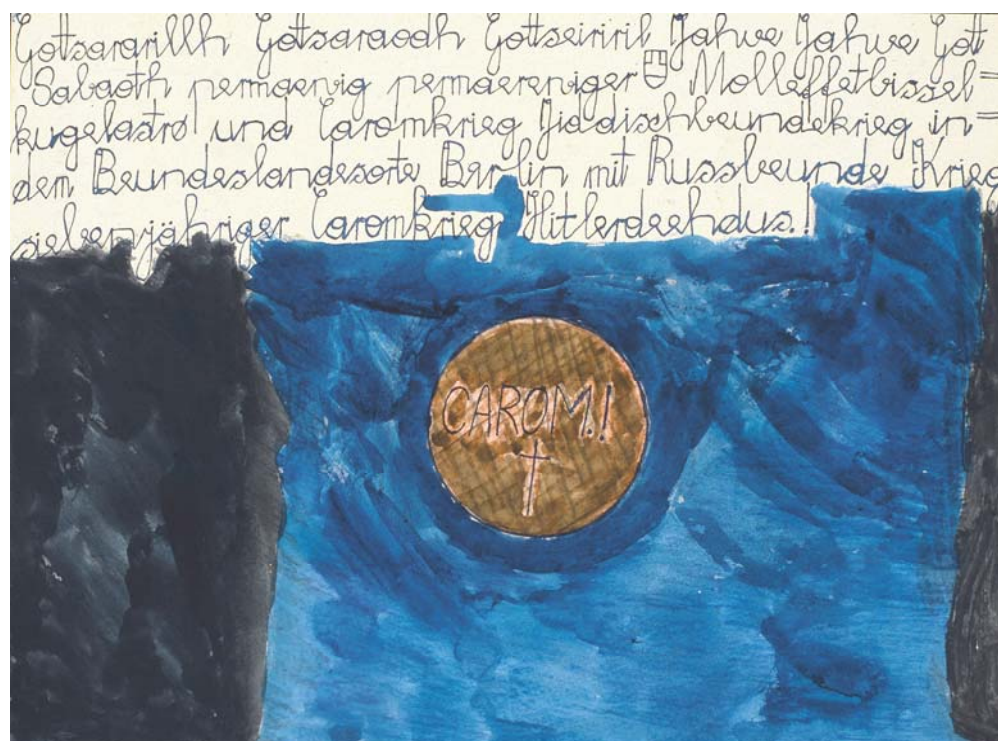 Gotsararillh Gotsaraodh Gottseiriril Jahwe Jahwe Got
Sabaoth permaenig permaereniger Molleffetbissel=
kugelastro und Caromkrieg Jiddischbeundekrieg in=
dem Beundeslandesorte Berlin mit Russbeunde Krieg
siebenjähriger Caromkrieg Hitlerdeehdus.!
CAROM.!